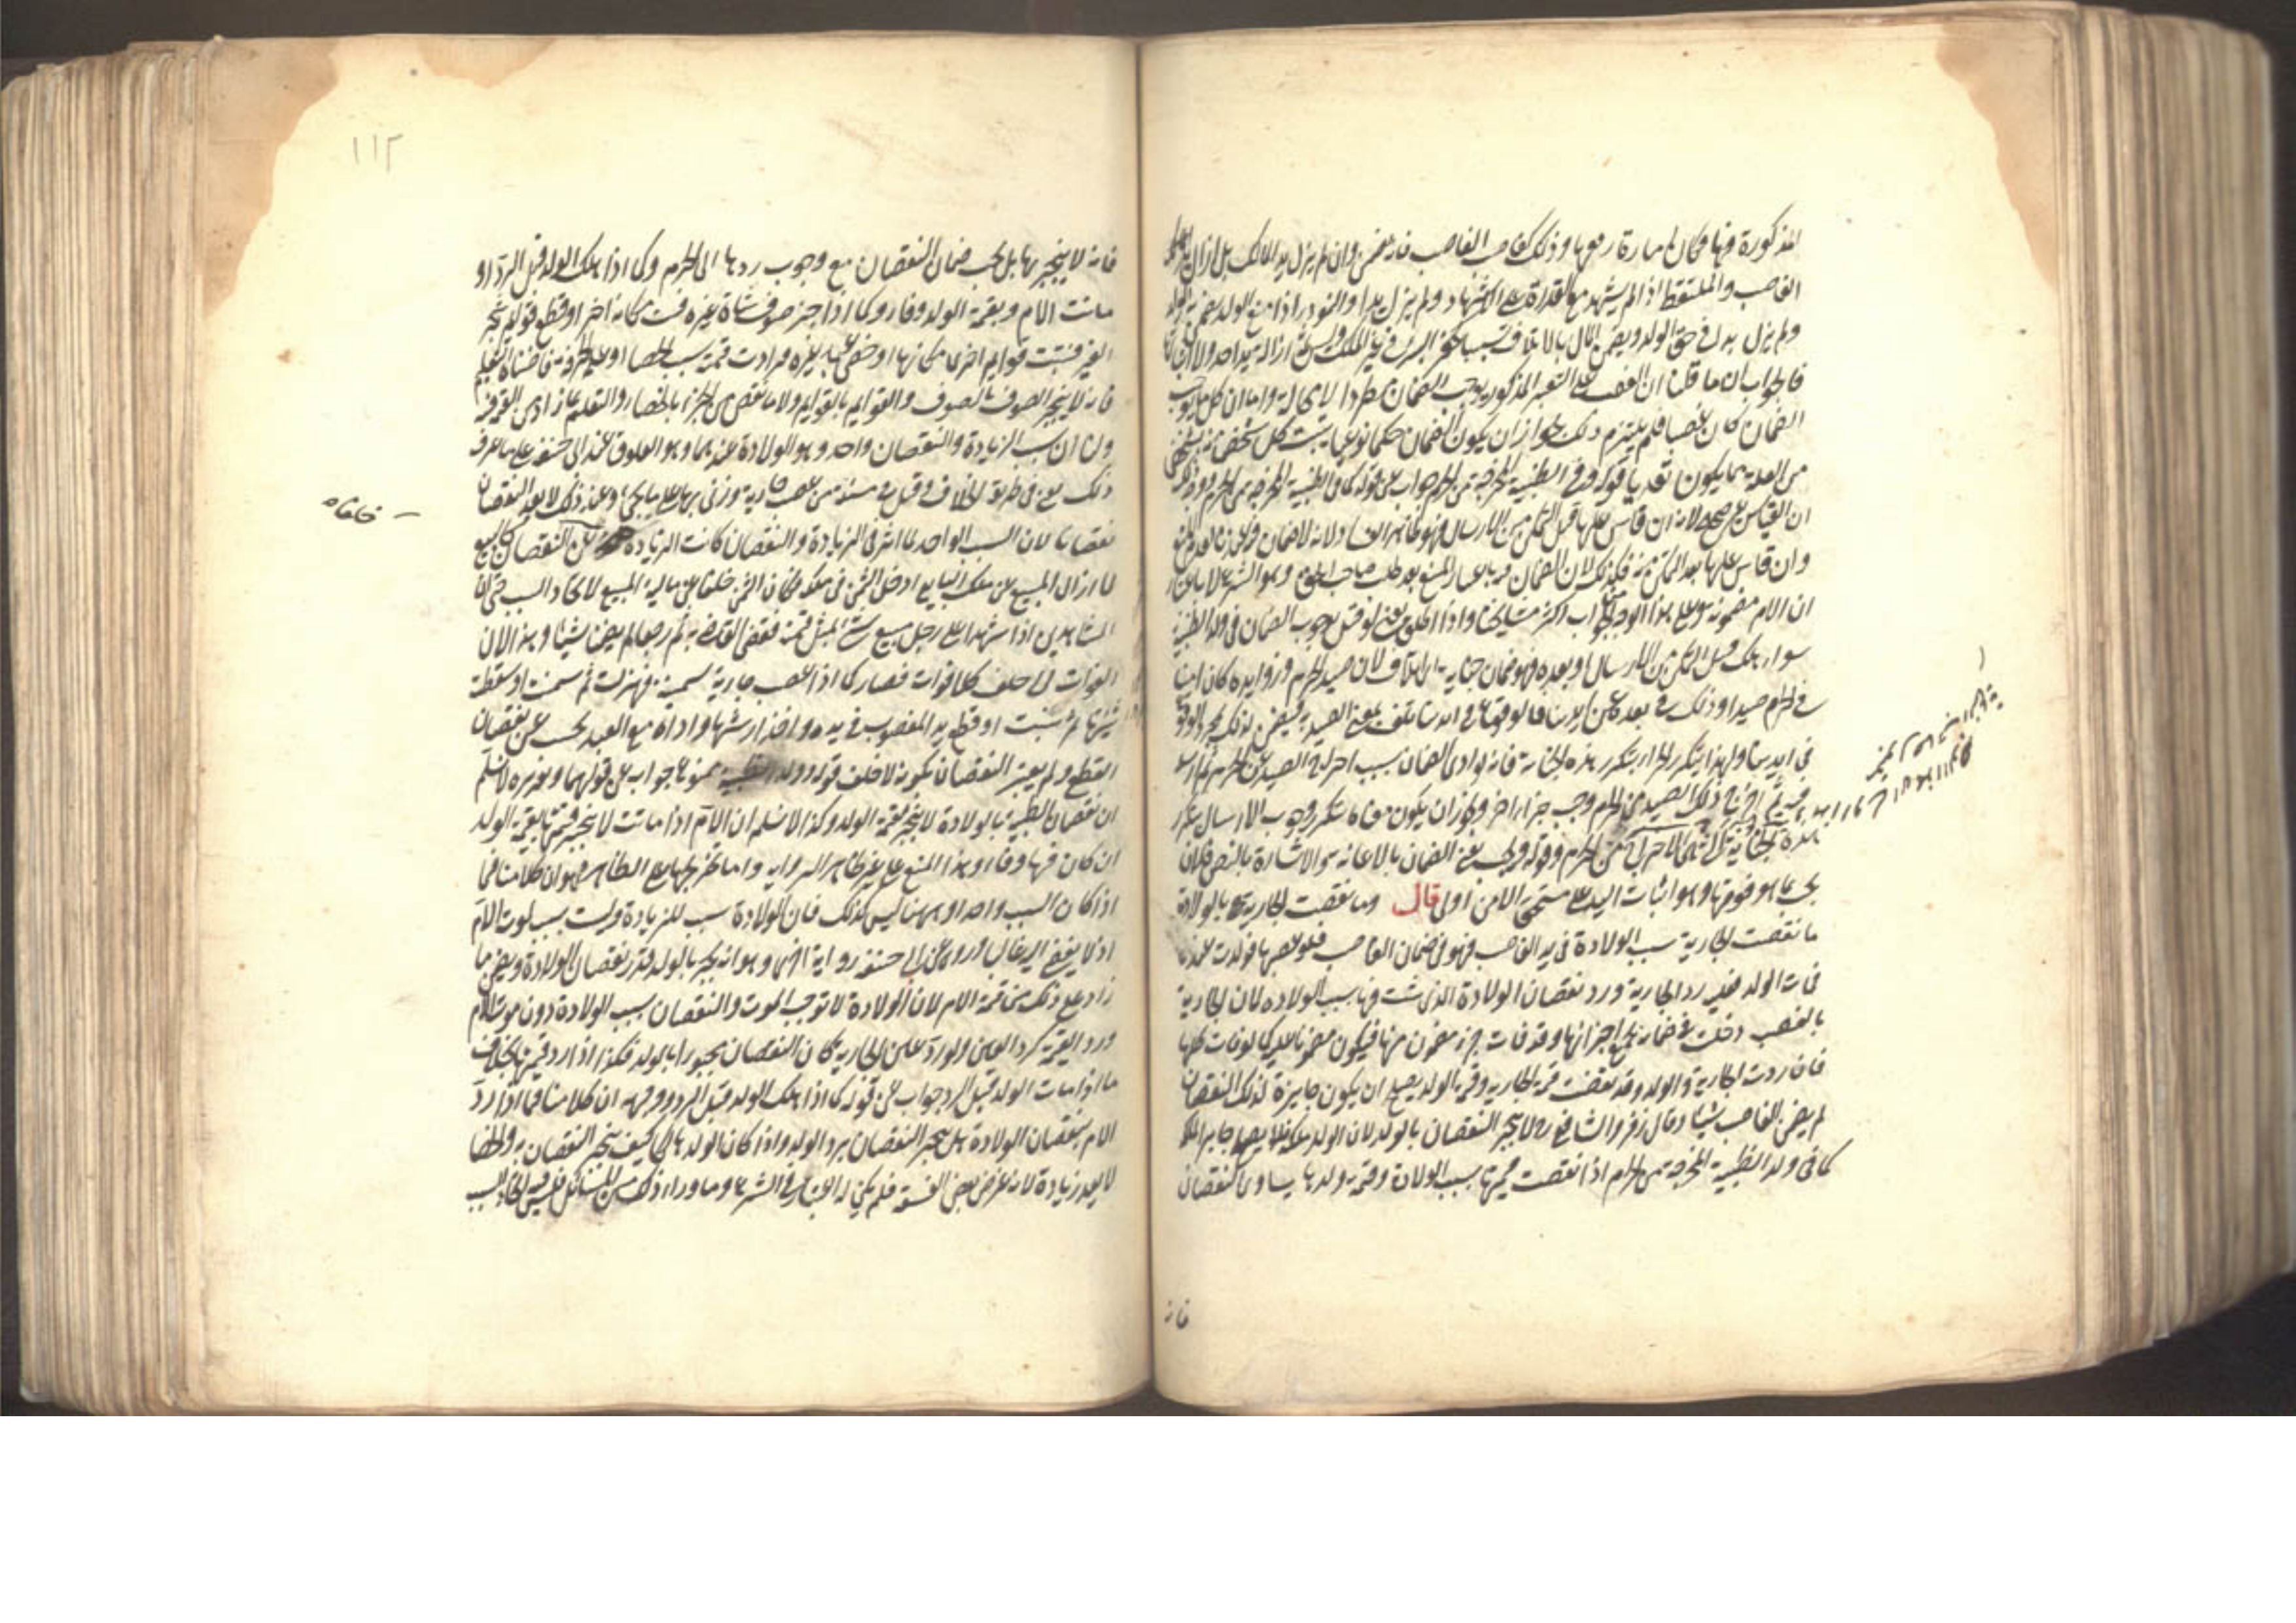 المذكورة فيها فكان امارة رفعها وذلك كغاصب الغاصب فانه يضمن وان لم يزل يد المالك بل ازال يد
الغاصب والملتقط اذا لم يشهد مع القدرة على الاشهاد ولم يزل يدا والمغرور اذا منع الولد يضمن به الولد
ولم يزل يده في حق الولد ويضمن المال بالاتلاف تسببا كحفر البئر في غير الملك وليس ثمة ازالة يد احد ولا اثباتها
فالجواب ان ما قلنا ان الغصب على التفسير المذكور يوجب الضمان مطردا لا محالة واما ان كل ما يوجب
الضمان كان غصبا فلم يلتزم ذلك لجواز ان يكون الضمان حكما نوعيا يثبت كل شخص منه بشخص
من العلة مما يكون تعديا قوله وفي الظبية المخرجة من الحرم جواب عن قوله كما في الظبية المخرجة من الحرم ووجهه
ان القياس غير صحيح لانه ان قاس عليها قبل التمكن من الارسال فهو ظاهر الفساد لانه لا ضمان فيه عندنا لعدم المنع
وان قاس عليها بعد التمكن منه فكذلك لان الضمان فيه باعتبار المنع بعد طلب صاحب الحق وهو الشرع لا باعتبار
ان الام مضمونة وعلى هذا الوجه الجواب اكثر مشايخنا واذا اطلق يعني لو قيل بوجوب الضمان في ولد الظبية
سواء هلك قبل التمكن من الارسال او بعده فهو ضمان جناية الاتلاف لان صيد الحرم وزوايده كان امنا
في الحرم صيدا وذلك في بعده عن ايدينا فالوقوع في ايدينا تلف لمعنى الصيدية فيضمن لذلك بمجرد الوقوع
في ايدينا ولهذا يتكرر الجزاء بتكرر هذه الجناية فانه لو ادى الضمان بسبب اخراج الصيد عن الحرم ثم ارسله
فيه ثم اخرج ذلك الصيد من الحرم وجب جزاء اخر ويجوز ان يكون معناه يتكرر وجوب الارسال بتكرر
هذه الجناية التي هي الاخراج من الحرم وقوله ويجب يعني الضمان بالاعانة والاشارة بالنص فلان
يجب بما هو فوقها وهو اثبات اليد على مستحق الامن اولى قال وما نقصت الجارية بالولادة
ما نقصت الجارية بسبب الولادة في يد الغاصب فهو في ضمان الغاصب فلو غصبها فولدت عنده
فمات الولد فعليه رد الجارية ورد نقصان الولادة الذي ثبت فيها بسبب الولادة لان الجارية
بالغصب دخلت في ضمانه بجميع اجزائها وقد فات جزء مضمون منها فيكون مضمونا عليه كما لو فات كلها
فان ردت الجارية والولد وقد نقصت قيمة الجارية وقيمة الولد يصلح ان يكون جابرة لذلك النقصان
لم يضمن الغاصب شيئا وقال زفر والشافعي رح لا ينجبر النقصان بالولد لان الولد ملكه فلا يصلح جابرا لملكه
كما في ولد الظبية المخرجة من الحرم اذا نقصت قيمتها بسبب الولادة وقيمة ولدها يساوي النقصان
فانه
١١٢
فانه لا ينجبر بها بل يجب ضمان النقصان مع وجوب ردها الى الحرم وكما اذا هلك الولد قبل الرد او
ماتت الام وبقيمة الولد وفاء وكما اذا جز صوف شاة غيره فنبت مكانه اخر او قطع قوايم شجر
الغير فنبتت قوايم اخرى مكانها او خصى عبد غيره فزادت قيمته بسبب الخصاء او علمه الحرفة فاضناه التعليم
فانه لا ينجبر الصوف بالصوف والقوايم بالقوايم ولا ما نقص من الجزء بالخصاء والتعليم بما زاد من القيمة
ولنا ان سبب الزيادة والنقصان واحد وهو الولادة عندهما وهو العلوق عند ابي حنيفة على ما عرف
ذلك يعني في طريقة الخلاف وقيل في مسئلة من غصب جارية وزنى بها على ما يجيء وعند ذلك لا يعد النقصان
نقصانا لان السبب الواحد لما اثر في الزيادة والنقصان كانت الزيادة عن النقصان كالبيع
لما ازال المبيع عن ملك البايع ادخل الثمن في ملكه فكان الثمن خلفا عن مالية المبيع لاتحاد السبب حتى ان
الشاهدين اذا شهدا على رجل ببيع شيء بمثل قيمته فقضى القاضي به ثم رجعا لم يضمنا شيئا وهذا لان
الفوات الى خلف كلا فوات فصار كما اذا غصب جارية سمينة فهزلت ثم سمنت او سقطت
ثنيتها ثم نبتت او قطع يد المغصوب في يده واخذ ارشها واداه مع العبد يحسب عن نقصان
القطع ولم يعتبر النقصان لكونه لا خلف قوله وولد الظبية ممنوع جواب عن قولهما وتقريره لا نسلم
ان نقصان الظبية بالولادة لا ينجبر بقيمة الولد وكذا لا نسلم ان الام اذا ماتت لا ينجبر قيمتها بقيمة الولد
ان كان فيها وفاء وهذا المنع على غير ظاهر الرواية واما تخريجها على الظاهر فهو ان كلامنا فيما
اذا كان السبب واحدا وههنا ليس كذلك فان الولادة سبب للزيادة وليست بسبب لموت الام
اذ لا يفضي اليه غالبا وروي عن ابي حنيفة رواية اخرى وهو انه يجبر بالولد قدر نقصان الولادة ويضمن ما
زاد على ذلك من قيمة الام لان الولادة لا توجب الموت والنقصان بسبب الولادة دون موت الام
ورد القيمة كرد العين ولو رد عين الجارية كان النقصان مجبورا بالولد فكذا اذا رد قيمتها بخلاف
ما اذا مات الولد قبل الرد جواب عن قوله كما اذا هلك الولد قبل الرد ووجهه ان كلامنا فيما اذا رد
الام بنقصان الولادة هل ينجبر النقصان برد الولد واذا كان الولد هالكا كيف ينجبر النقصان به والخصاء
لا يعد زيادة لانه غرض بعض الفسقة فلم يكن له اعتبار في الشرع وما وراء ذلك من المسائل فليس فيه اتحاد السبب